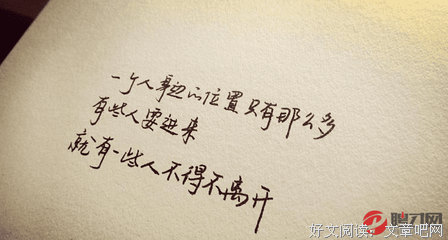 一个人身边的位置只有那么多
有些人要进来
就有一些人不得不离开
好文阅读：文章吧网